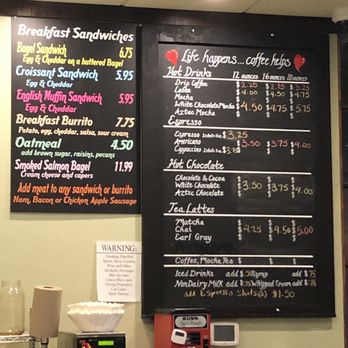 Breakfast Sandwiches
Bagel Sandwich 6.75
Egg & Cheddar on a buttered Bagel
Croissant Sandwich 5.95
Egg & Cheddar
English Muffin Sandwich 5.95
Egg & Cheddar
Breakfast Burrito 7.75
Potato, egg, cheddar, salsa, sour cream
Oatmeal 4.50
add brown sugar, raisins, pecans
Smoked Salmon Bagel 11.99
Cream cheese and capers
Add meat to any sandwich or burrito
Ham, Bacon or Chicken Apple Sausage
Life happens... coffee helps
Hot Drinks 12 ounces 16 ounces 20 ounces
Drip Coffee $2.25 $2.75 $3.25
Latte
Mocha
White Chocolate Mocha $4.50 $4.75 $5.75
Aztec Mocha
Espresso
Espresso $3.25
Americano
Cappuccino
Hot Chocolate
Chocolate & Cocoa
White Chocolate $3.50 $3.75 $4.00
Aztec Chocolate
Tea Lattes
Matcha
Chai $4.25 $4.50 $5.00
Earl Gray
Coffee, Mocha, Tea
Iced Drinks add $.50 Syrup add $.75
NonDairy Milk add $.75 Whipped Cream add $.75
add Espresso Shot(s) $1.50
WARNING:
Drinking Distilled
Spirits, Beer, Coolers,
Wine and Other
Alcoholic Beverages
May Increase
Cancer Risk, and,
During Pregnancy,
Can Cause
Birth Defects
BUNN